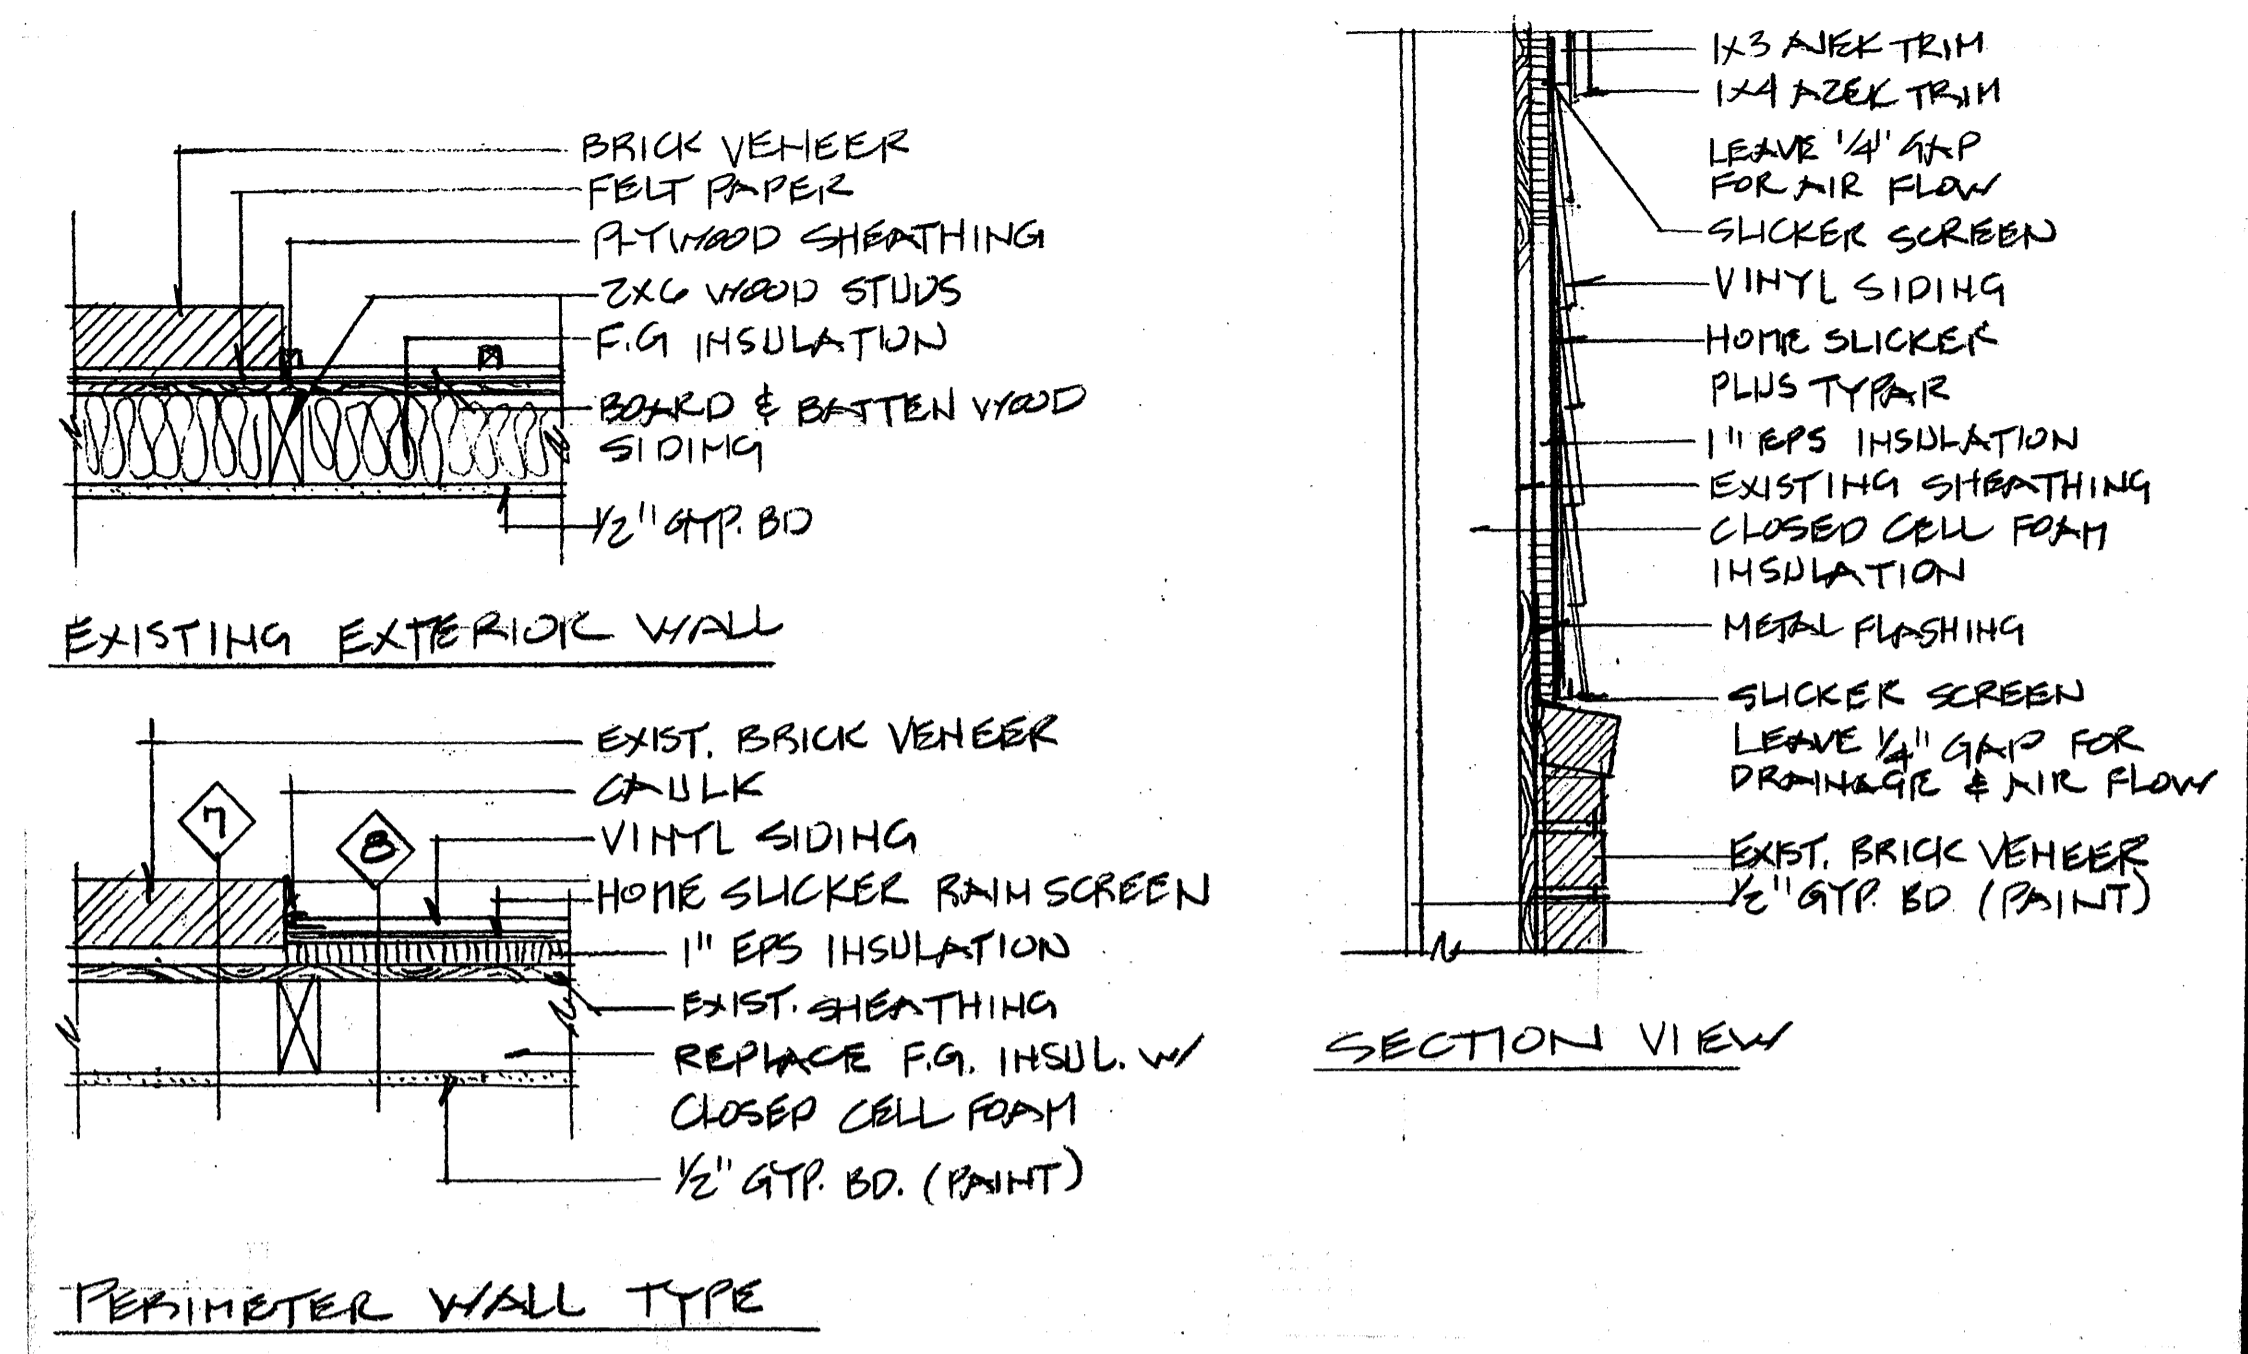 BRICK VENEER
FELT PAPER
PLYWOOD SHEATHING
2X6 WOOD STUDS
F.G INSULATION
BOARD & BATTEN WOOD
SIDING
1/2" GYP. BD
EXISTING EXTERIOR WALL
EXIST. BRICK VENEER
CAULK
7
8
VINYL SIDING
HOME SLICKER RAIN SCREEN
1" EPS INSULATION
EXIST. SHEATHING
REPLACE F.G. INSUL. W/
CLOSED CELL FOAM
1/2" GYP. BD. (PAINT)
PERIMETER WALL TYPE
1X3 AZEK TRIM
1X4 AZEK TRIM
LEAVE 1/4" GAP
FOR AIR FLOW
SLICKER SCREEN
VINYL SIDING
HOME SLICKER
PLUS TYPAR
1" EPS INSULATION
EXISTING SHEATHING
CLOSED CELL FOAM
INSULATION
METAL FLASHING
SLICKER SCREEN
LEAVE 1/4" GAP FOR
DRAINAGE & AIR FLOW
EXIST. BRICK VENEER
1/2" GYP. BD (PAINT)
SECTION VIEW